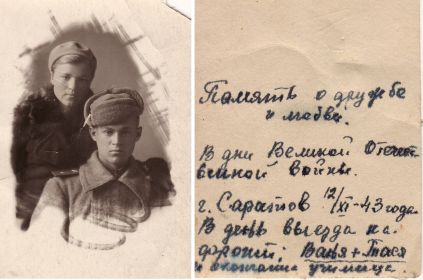 Память о дружбе
и любви.
В дни Великой Отечест
венной войны.
г. Саратов 12/XI-43 года
В день выезда на
фронт: Ваня + Тася
и окончание училища